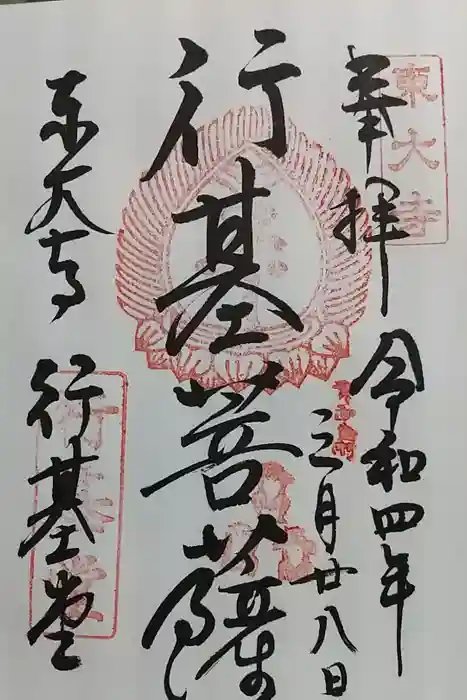 奉拝
東大寺
令和四年
三月廿八日
行基菩薩
東大寺
行基堂
行基堂